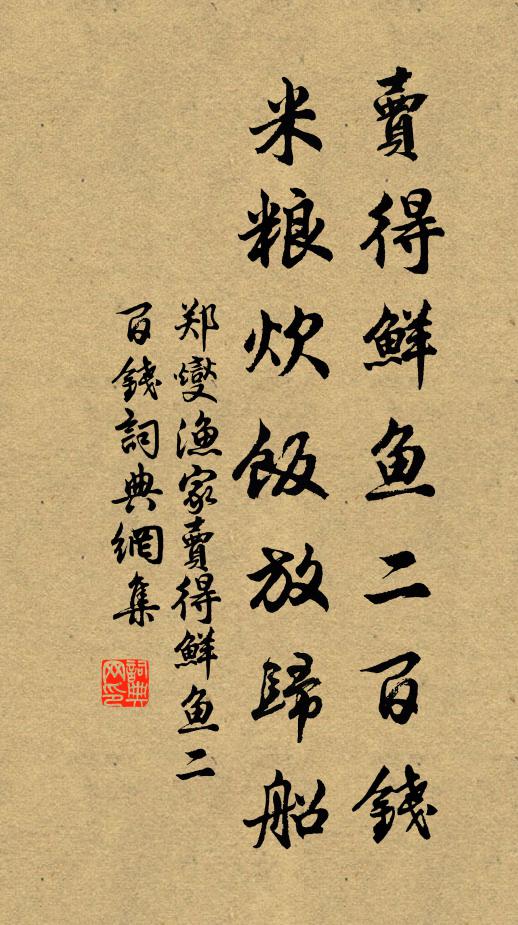 賣得鮮鱼二百錢
米粮炊飯放歸船
郑燮渔家賣得鮮鱼二
百錢詞典網集
詞典
网印